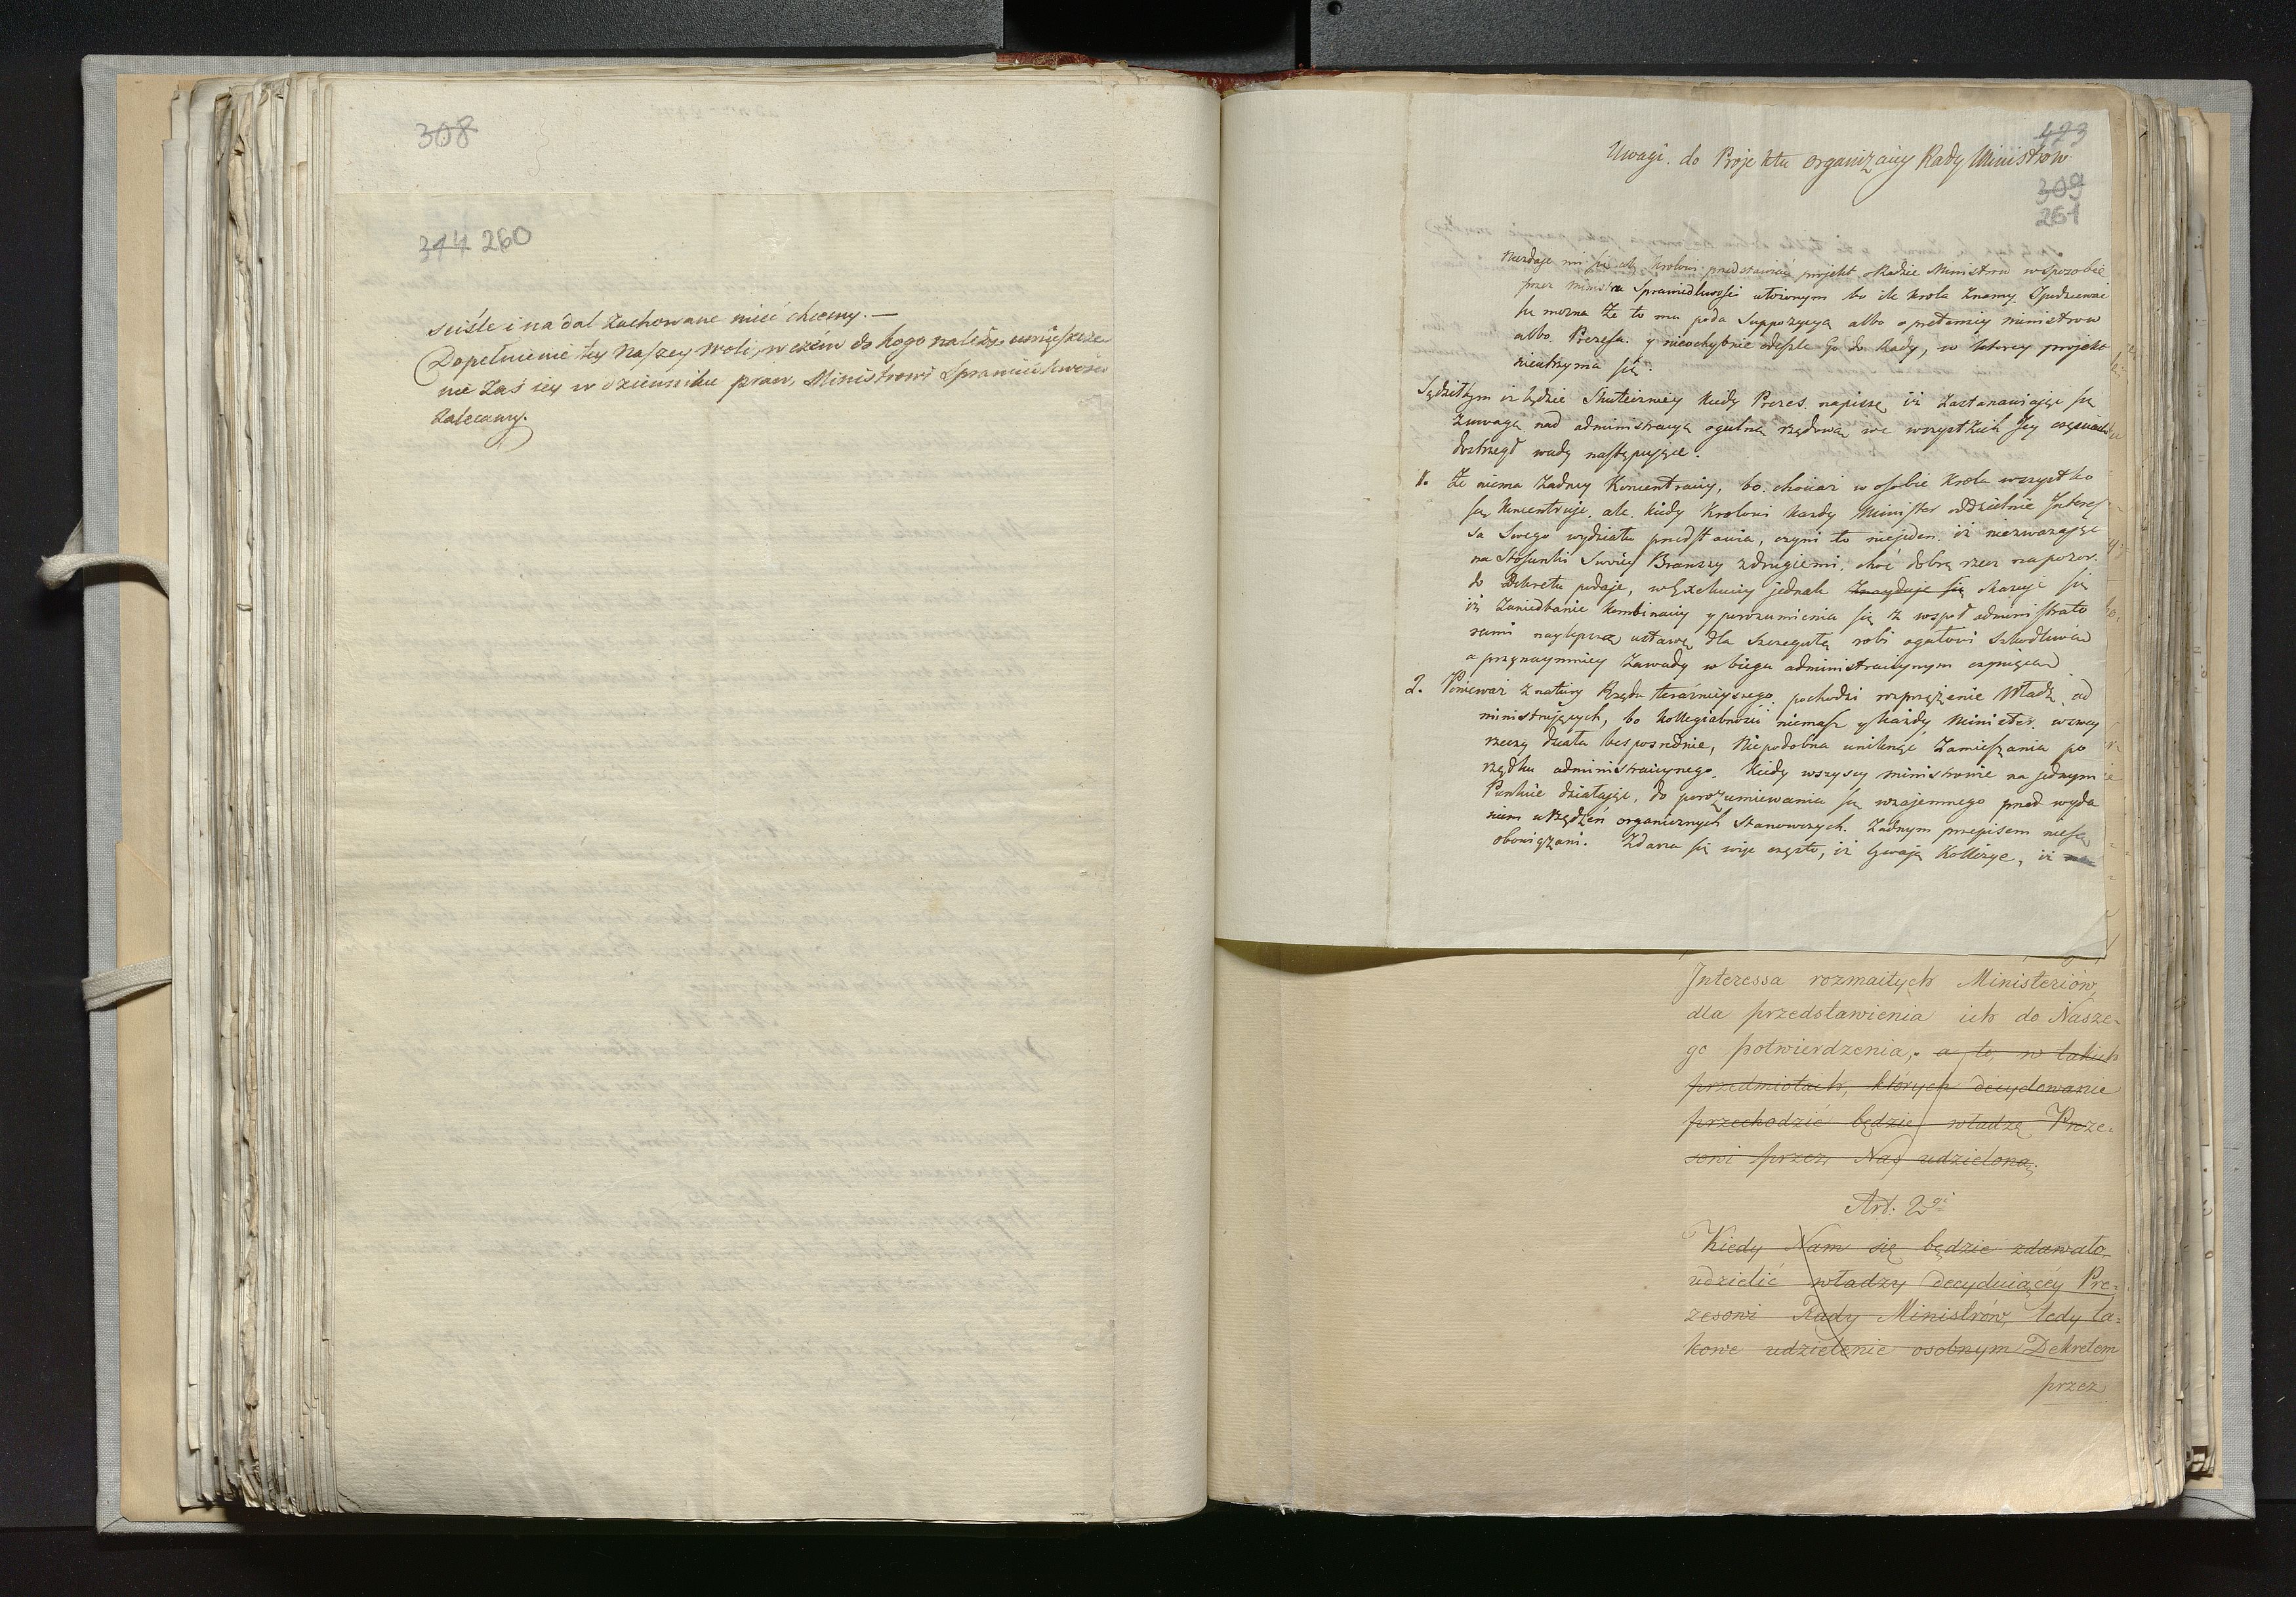 308
344 260
sciśle i na dal zachowane mieć chcemy. —
Dopełnienie tey Naszey Woli, w czém do kogo należy, umieszcze-
nie zaś iey w dzienniku praw, Ministrowi Sprawiedliwości
zalecamy.
493
Uwagi do Projektu organizacyi Rady Ministrow.
309
261
Niezdaje mi się aby Krolowi przedstawiać projekt o Radzie Ministrow w sposobie
przez Ministra Sprawiedliwości ułożonym bo ile Krola znamy. Spodziewać
się mozna że to mu poda suppozycyą albo o pretensiy ministrow
albo Prezesa. y nieochybnie odeszle go do Rady, w ktorey projekt
nieutrzyma się.
Sądziłbym iz będzie skuteczniey kiedy Prezes napisze iż zastanawiając się
z uwagą nad administracyą ogulną rządową we wszystkich jey częsciach
dostrzegł wady następujące.
1. Że niema żadney Koncentracyi, bo chociaż w osobie Krola wszystko
się koncentruje. ale kiedy Krolowi każdy Minister oddzielnie Interes
sa swego wydziału przedstawia, czyni to niejeden iż niezwazając
na stosunki swoiey Branszy z drugiemi, choć dobrą rzecz na pozor
do Dekretu podaje, w Exekucyi jednak znayduje się okazuje się
iż zaniedbanie kombinacyi y porozumienia się z wspoł administrato
rami naylepszą ustawę dla szczegułu robi ogułowi szkodliwą
a przynaymniey zawady w biegu administracyinym czyniącą
2. Ponieważ z natury Rządu teraznieyszego pochodzi rozprzężenie Władz ad
ministrujących, bo kollegialności niemasz y każdy Minister w swey
rzeczy działa bezposrednie, Niepodobna uniknąć zamieszania po
rządku administracyinego. Kiedy wszyscy ministrowie na jednym
Punkcie działając, do porozumiewania się wzajemnego przed wyda
niem urządzeń organicznych stanowczych. Żadnym przepisem niesą
obowiązani. Zdarza się więc często, iż bywają Kollizye, iż
Interessa rozmaitych Ministeriów,
dla przedstawienia ich do Nasze-
go potwierdzenia, a to, w takich
przedmiotach, których decydowanie
przechodzić będzie władzę Preze-
sowi przez Nas udzieloną.
Art. 2gi
Kiedy Nam się będzie zdawało,
udzielić władzy decyduiącéy Pre-
zesowi Rady Ministrów, tedy ta-
kowe udzielenie osobnym Dekretem
przez